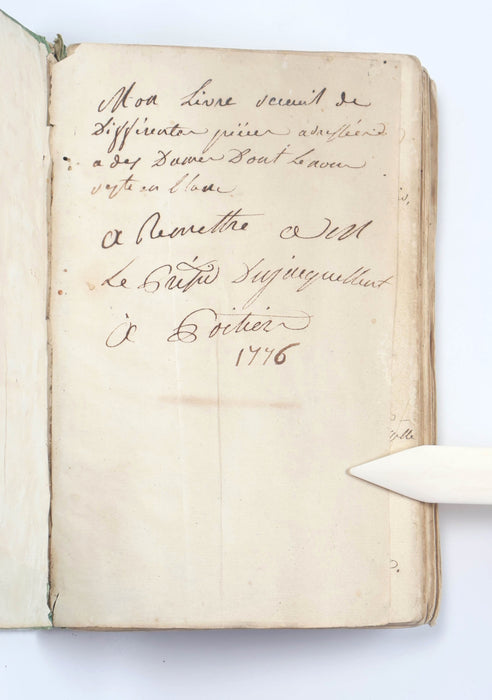 Mon Livre receuil de
Différentes pièces adressées
a des Dames Dont Le nom
reste en blanc
a Remettre a M
Le
a Poitiers
1776